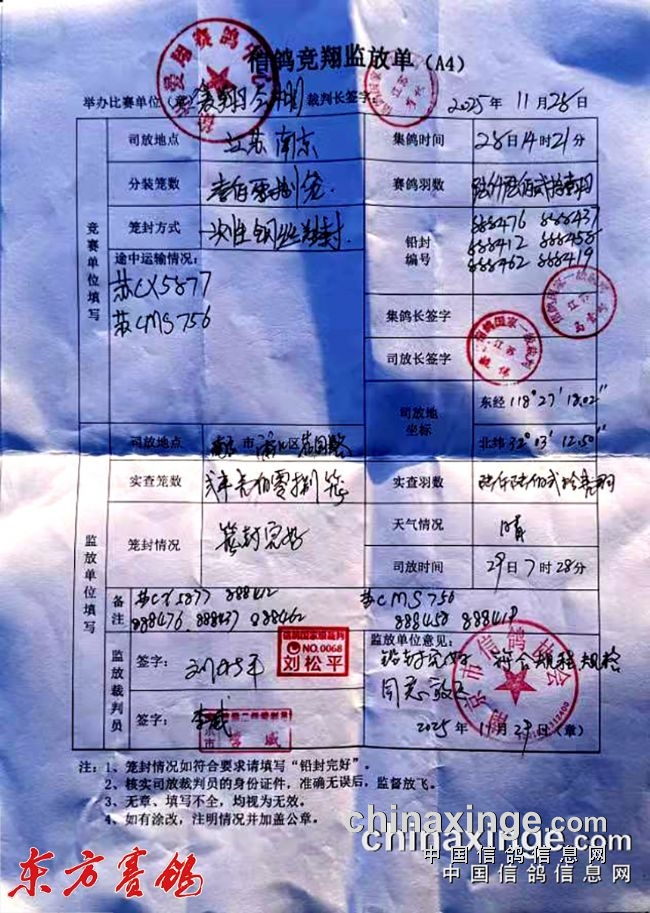 信鸽竞翔监放单(A4)
举办比赛单位(章) 裁判长签字: 2025年 11月28日
竞赛单位填写
司放地点 江苏南京 集鸽时间 28日14时21分
分装笼数 壹佰零捌笼 赛鸽羽数
笼封方式 一次性钢丝铅封 铅封编号 888476 888437
888412 888458
888462 888419
途中运输情况:
苏CX5877
苏CMS756
集鸽长签字
司放长签字
司放地坐标 东经118°27′18.02″
北纬32°03′12.50″
监放单位填写
司放地点 南京市浦口区
实查笼数 壹佰零捌笼 实查羽数
笼封情况 笼封完好 天气情况 晴
司放时间 29日7时28分
备注 苏CX5877 888412 苏CMS756
888476、888437 888462 888458 888419
监放裁判员
签字: 刘松平
信鸽国家级裁判
NO.0068
刘松平
签字: 李威
李威
监放单位意见:
铅封完好 符合规程规格
同意放飞
南京市信鸽协会
2025年11月29日(章)
注: 1、笼封情况如符合要求请填写“铅封完好”。
2、核实司放裁判员的身份证件,准确无误后,监督放飞。
3、无章、填写不全,均视为无效。
4、如有涂改,注明情况并加盖公章。
chinaxinge.com
chinaxinge.com
中国信鸽信息网
中国信鸽信息网
东方赛鸽